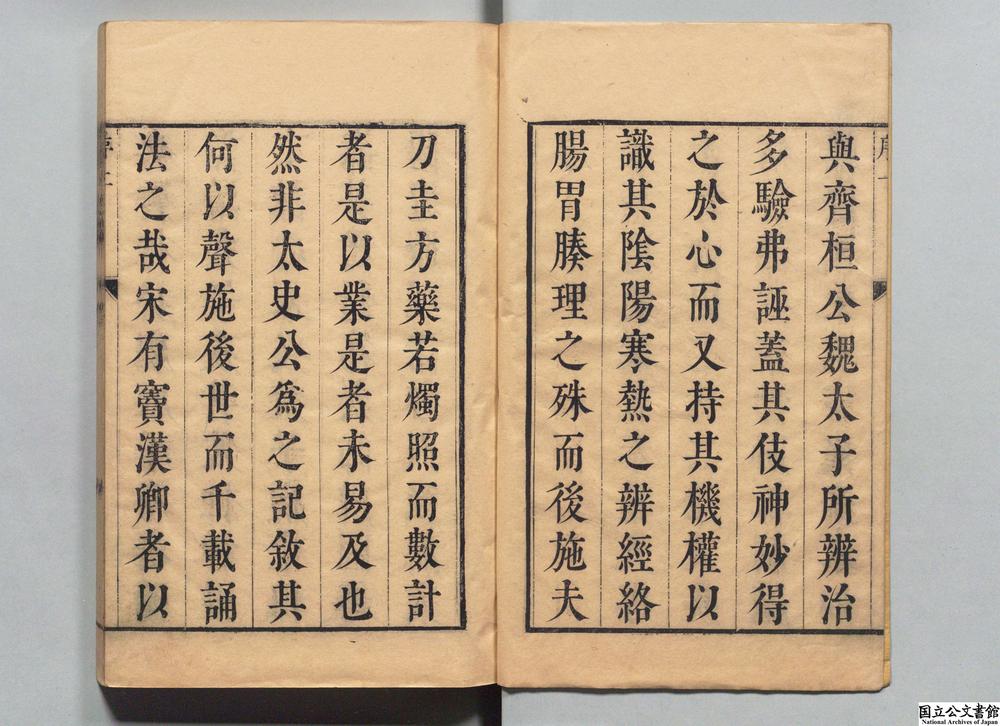 與齊桓公魏太子所辨治
多驗弗誣蓋其伎神妙得
之於心而又持其機權以
識其陰陽寒熱之辨經絡
腸胃腠理之殊而後施夫
刀圭方藥若燭照而數計
者是以業是者未易及也
然非太史公爲之記敘其
何以聲施後世而千載誦
法之哉宋有竇漢卿者以
国立公文書館
National Archives of Japan